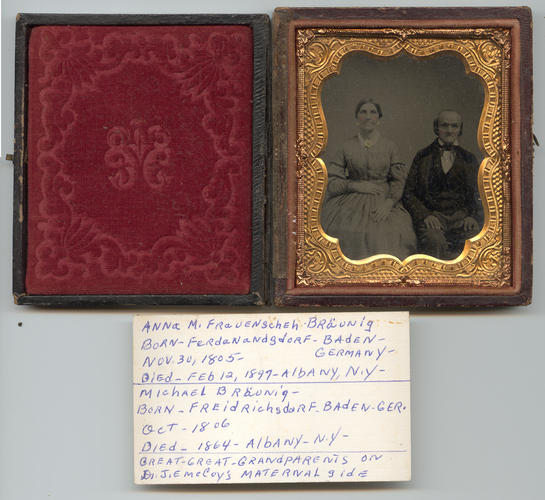 ANNA M. FRAUENSCHEH-BRÄUNIG
BORN-FERDANANDSDORF-BADEN-
NOV. 30, 1805- GERMANY-
DIED- FEB 12, 1897-ALBANY, N.Y-
MICHAEL BRÄUNIG-
BORN- FREIDRICHSDORF-BADEN-GER.
OCT-1806
DIED- 1864- ALBANY-N.Y-
GREAT-GREAT-GRANDPARENTS ON
MCCOYS MATERNAL SIDE